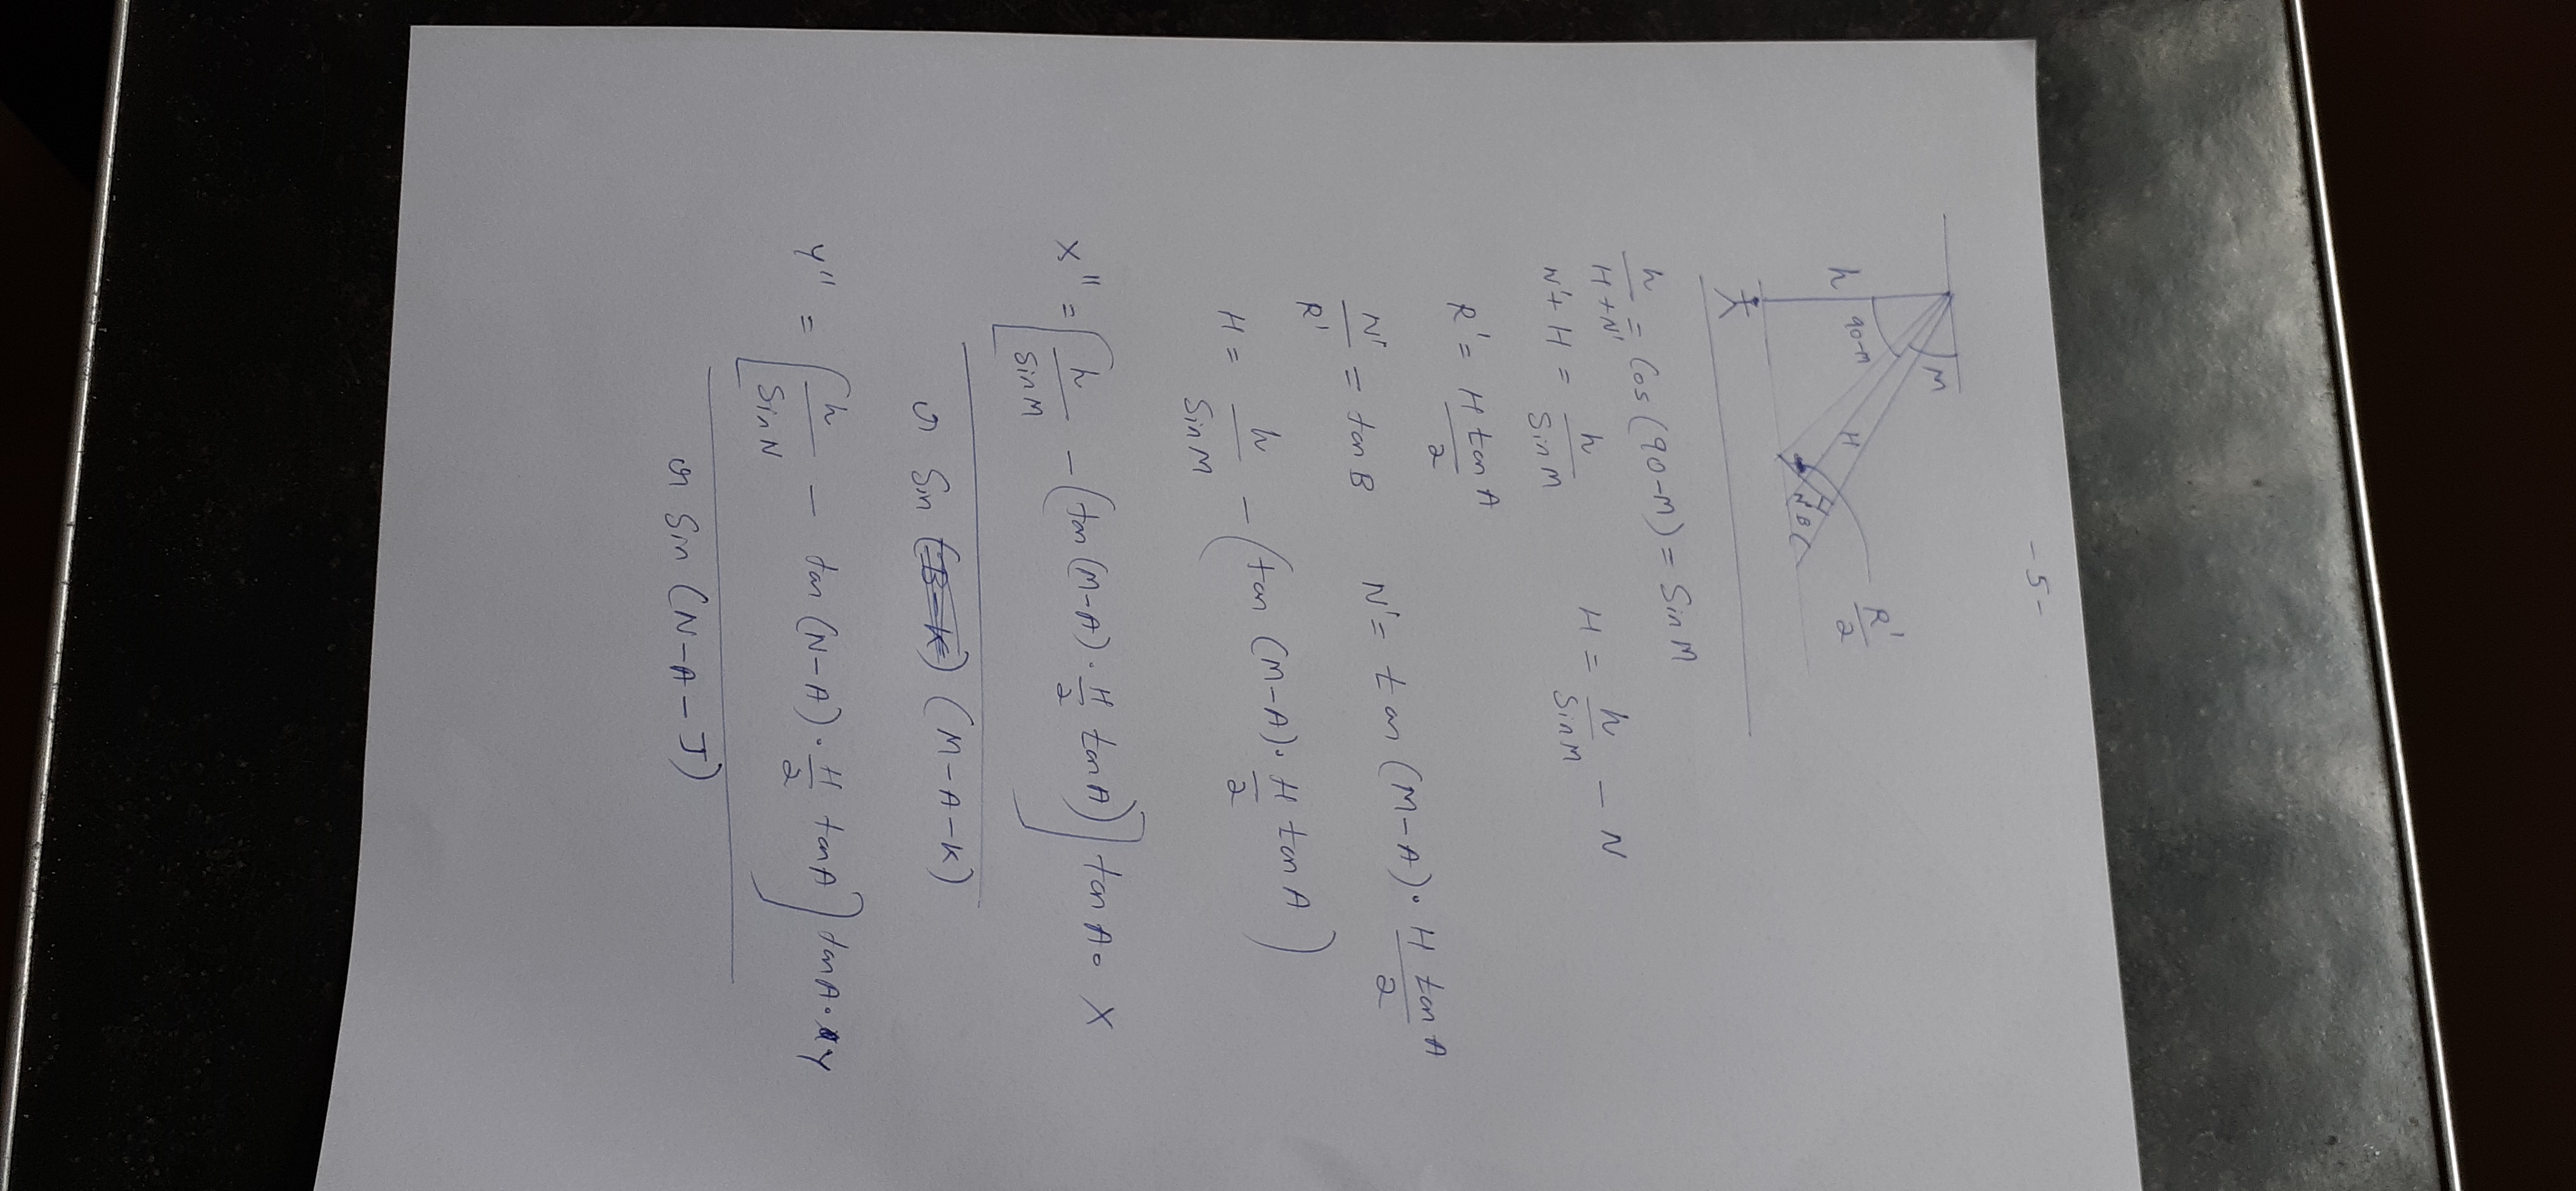 - 5 -
M
h
90-M
H
N'
B
R'/2
h/(H+N') = Cos (90-M) = Sin M
N'+ H = h/Sin M    H = h/Sin M - N
R' = H tan A/2
N'/R' = tan B    N' = tan (M-A) · H tan A/2
H = h/Sin M - (tan (M-A) · H/2 tan A)
X" = [h/Sin M - (tan (M-A) · H/2 tan A)] tan A · X
Sin (M-A-K)
Y" = [h/Sin N - tan (N-A) · H/2 tan A] tan A · Y
Sin (N-A-J)